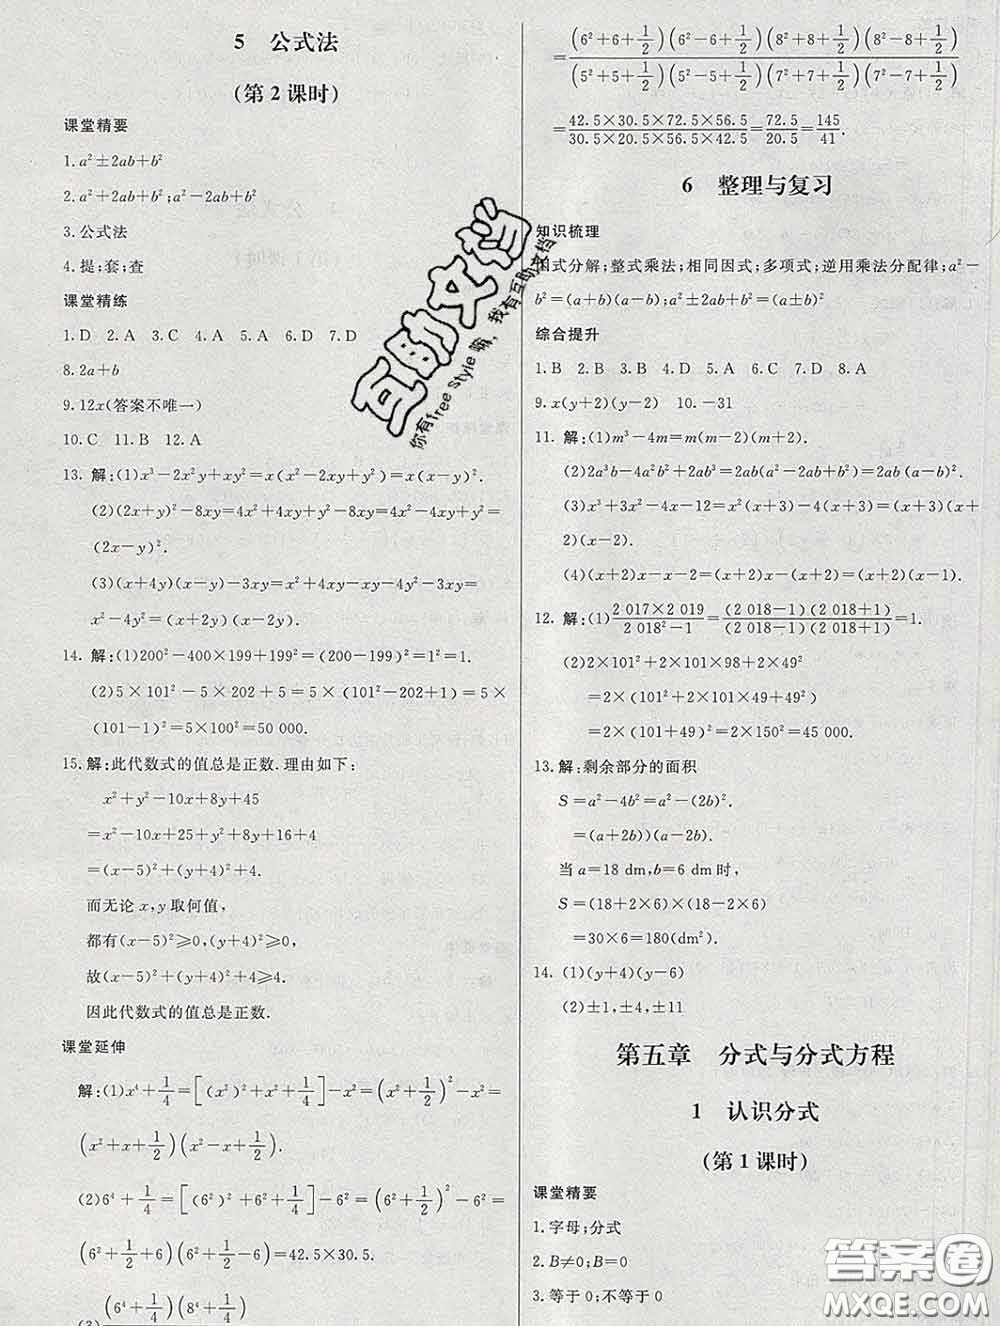 5 公式法
(第2课时)
课堂精要
1.a²±2ab+b²
2.a²+2ab+b²;a²-2ab+b²
3.公式法
4.提;套;查
课堂精练
1.D 2.A 3.C 4.A 5.A 6.D 7.D
8.2a+b
9.12x(答案不唯一)
10.C 11.B 12.A
13.解:(1)x³-2x²y+xy²=x(x²-2xy+y²)=x(x-y)².
(2)(2x+y)²-8xy=4x²+4xy+y²-8xy=4x²-4xy+y²=
(2x-y)².
(3)(x+4y)(x-y)-3xy=x²+4xy-xy-4y²-3xy=
x²-4y²=(x+2y)(x-2y).
14.解:(1)200²-400×199+199²=(200-199)²=1²=1.
(2)5×101²-5×202+5=5×(101²-202+1)=5×
(101-1)²=5×100²=50 000.
15.解:此代数式的值总是正数.理由如下:
x²+y²-10x+8y+45
=x²-10x+25+y²+8y+16+4
=(x-5)²+(y+4)²+4.
而无论x,y取何值,
都有(x-5)²≥0,(y+4)²≥0,
故(x-5)²+(y+4)²+4≥4.
因此代数式的值总是正数.
课堂延伸
解:(1)x⁴+1/4=[(x²)²+x²+1/4]-x²=(x²+1/2)²-x²=
(x²+x+1/2)(x²-x+1/2).
(2)6⁴+1/4=[(6²)²+6²+1/4]-6²=(6²+1/2)²-6²=
(6²+1/2+6)(6²+1/2-6)=42.5×30.5.
(6⁴+1/4)(8⁴+1/4)
=(6²+6+1/2)(6²-6+1/2)(8²+8+1/2)(8²-8+1/2)/(5²+5+1/2)(5²-5+1/2)(7²+7+1/2)(7²-7+1/2)
=42.5×30.5×72.5×56.5/30.5×20.5×56.5×42.5=72.5/20.5=145/41.
6 整理与复习
知识梳理
因式分解;整式乘法;相同因式;多项式;逆用乘法分配律;a²-
b²=(a+b)(a-b);a²±2ab+b²=(a±b)²
综合提升
1.B 2.B 3.D 4.B 5.D 6.D 7.D 8.A
9.x(y+2)(y-2) 10.-31
11.解:(1)m³-4m=m(m-2)(m+2).
(2)2a³b-4a²b²+2ab³=2ab(a²-2ab+b²)=2ab(a-b)².
(3)x³+3x²-4x-12=x²(x+3)-4(x+3)=(x+3)(x+
2)(x-2).
(4)(x+2)x-x-2=(x+2)x-(x+2)=(x+2)(x-1).
12.解:(1)2 017×2 019/2 018²-1=(2 018-1)(2 018+1)/(2 018-1)(2 018+1)=1.
(2)2×101²+2×101×98+2×49²
=2×(101²+2×101×49+49²)
=2×(101+49)²=2×150²=45 000.
13.解:剩余部分的面积
S=a²-4b²=a²-(2b)².
=(a+2b))(a-2b).
当a=18 dm,b=6 dm时,
S=(18+2×6)×(18-2×6)
=30×6=180(dm²).
14.(1)(y+4)(y-6)
(2)±1,±4,±11
第五章 分式与分式方程
1 认识分式
(第1课时)
课堂精要
1.字母;分式
2.B≠0;B=0
3.等于0;不等于0
互助文档
你有free style 嘛,我有互助文档
答案圈
MXQE.COM